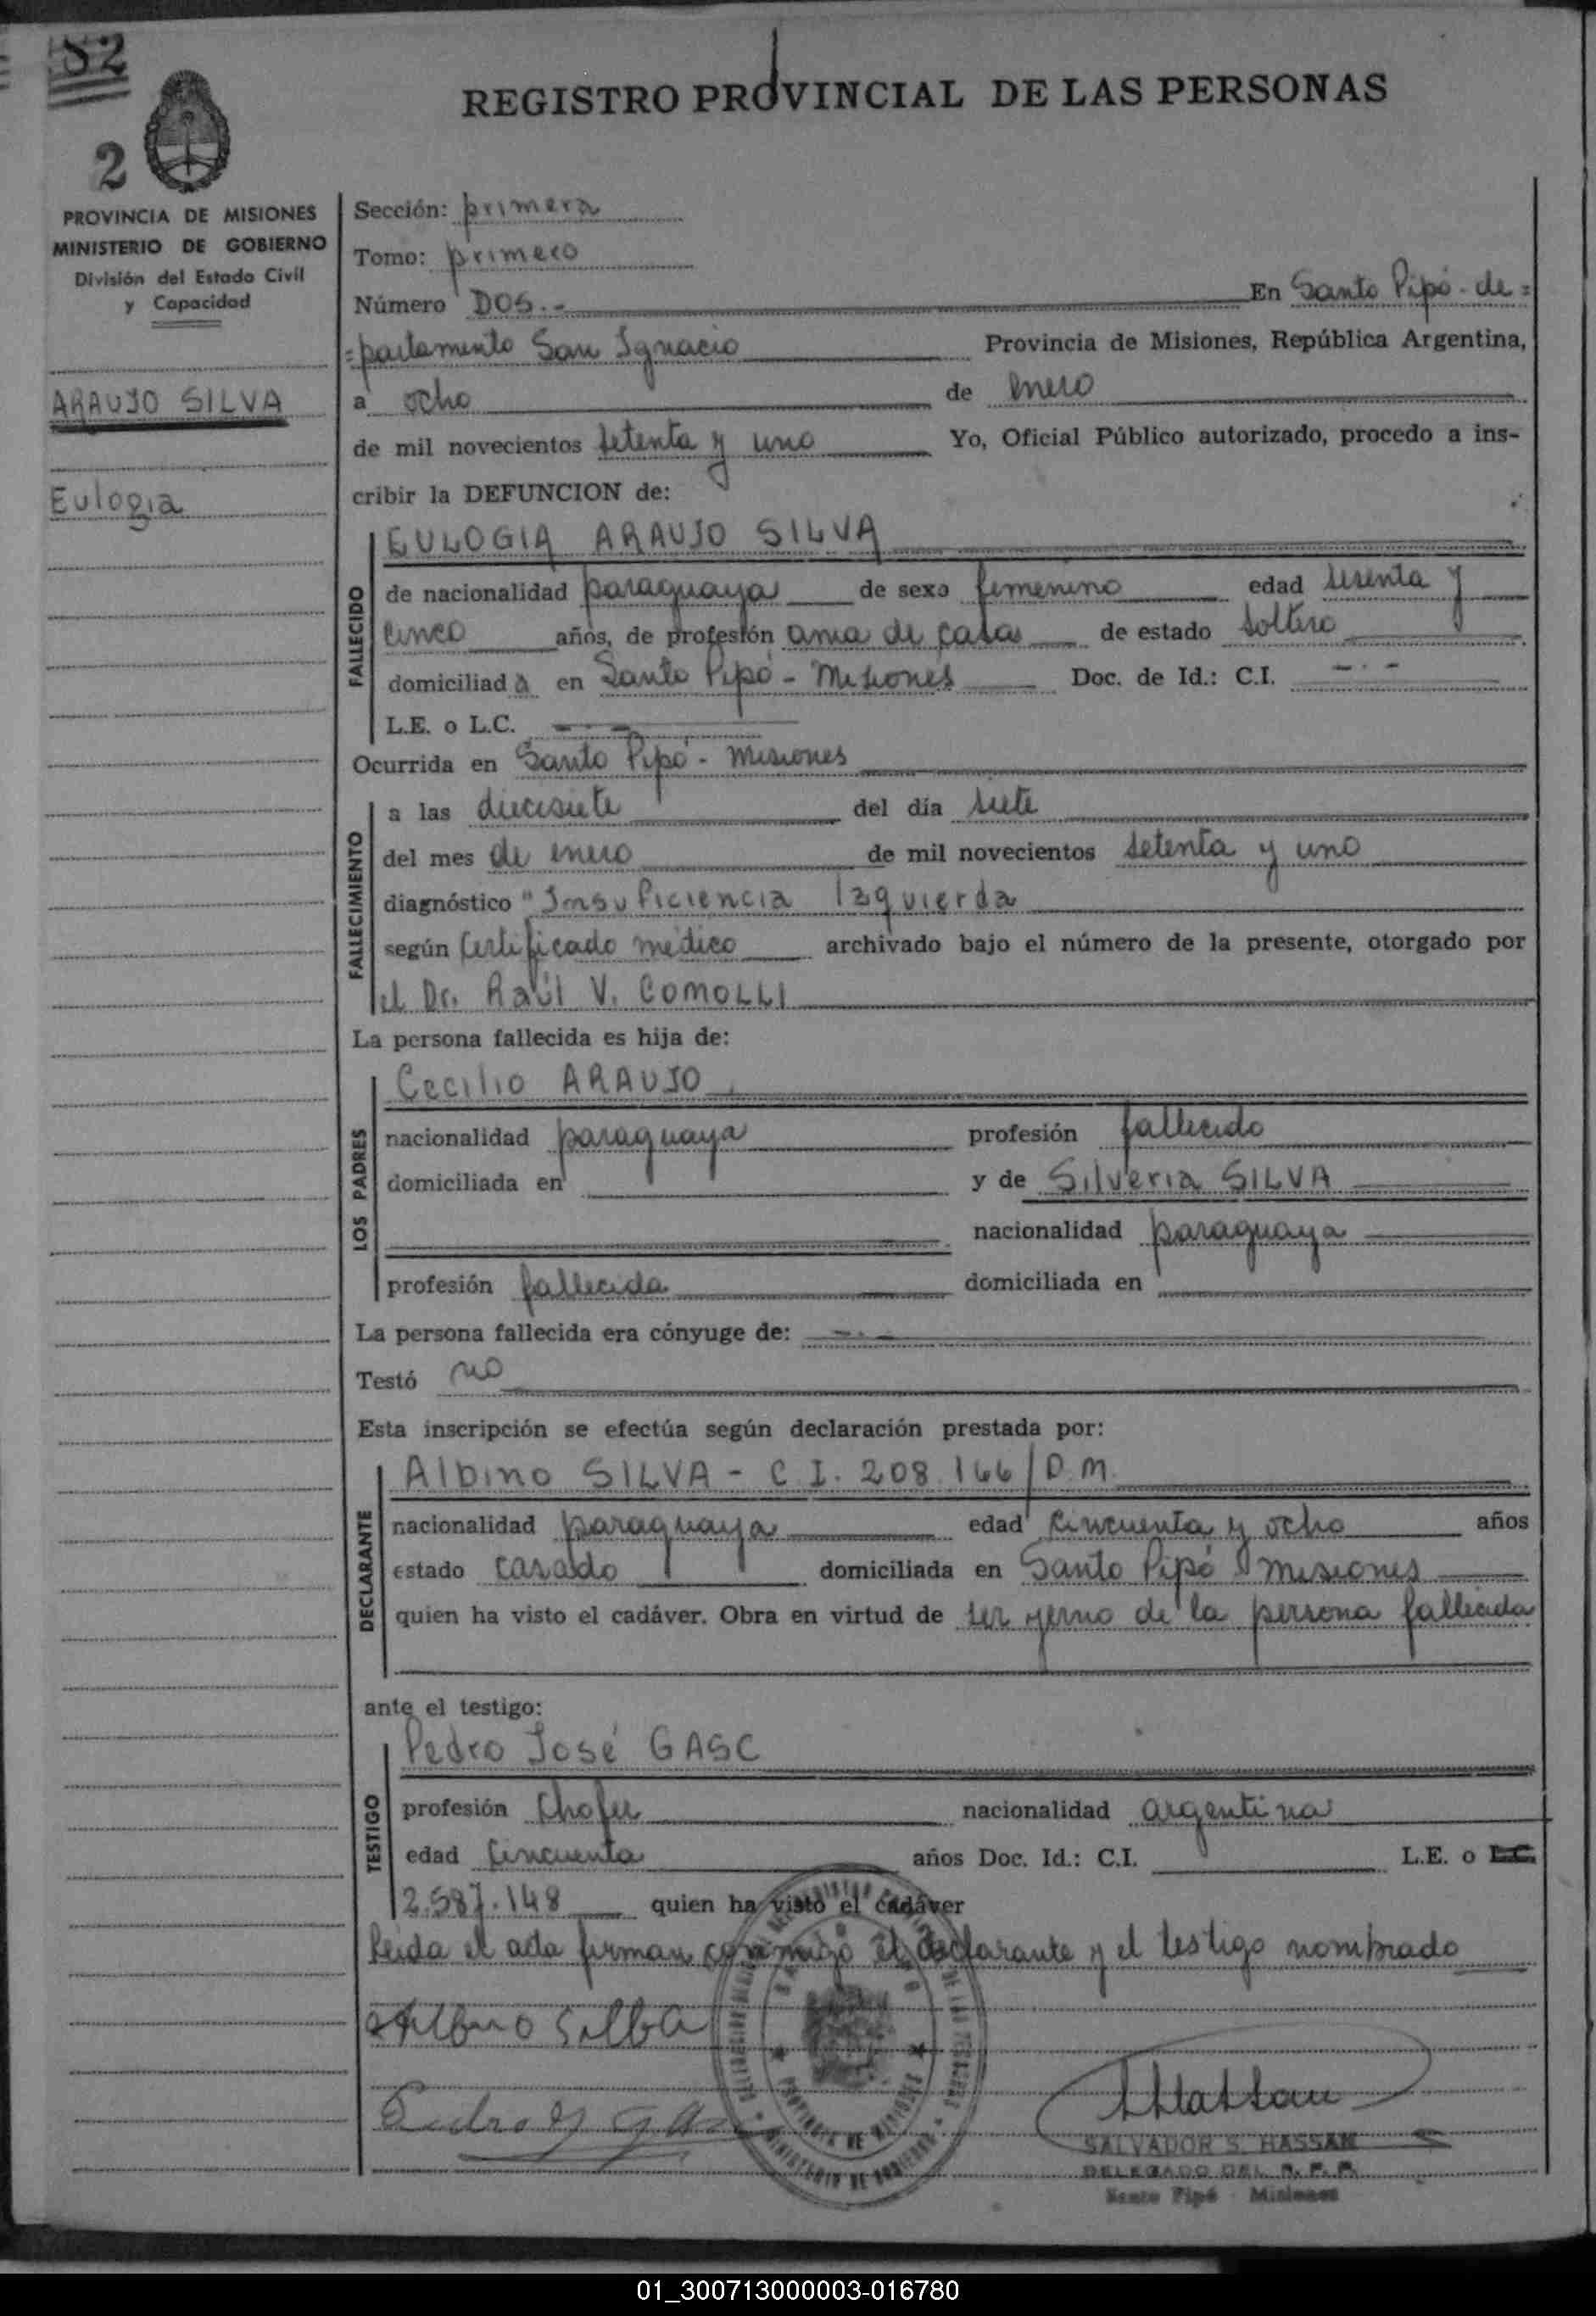 52
REGISTRO PROVINCIAL DE LAS PERSONAS
2
PROVINCIA DE MISIONES
MINISTERIO DE GOBIERNO
División del Estado Civil
y Capacidad
ARAUJO SILVA
Eulogia
Sección: primera
Tomo: primero
Número DOS.- En Santo Pipó - de=
=partamento San Ignacio Provincia de Misiones, República Argentina,
a ocho de enero
de mil novecientos setenta y uno Yo, Oficial Público autorizado, procedo a ins-
cribir la DEFUNCION de:
FALLECIDO
EULOGIA ARAUJO SILVA
de nacionalidad paraguaya de sexo femenino edad sesenta y
cinco años, de profesión ama de casa de estado soltero
domiciliad a en Santo Pipó - Misiones Doc. de Id.: C.I. -.-
L.E. o L.C. - -
Ocurrida en Santo Pipó - Misiones
FALLECIMIENTO
a las diecisiete del día siete
del mes de enero de mil novecientos setenta y uno
diagnóstico "Insuficiencia Izquierda
según Certificado médico archivado bajo el número de la presente, otorgado por
el Dr. Raúl V. COMOLLI
La persona fallecida es hija de:
LOS PADRES
Cecilio ARAUJO
nacionalidad paraguaya profesión fallecido
domiciliada en y de Silveria SILVA
nacionalidad paraguaya
profesión fallecida domiciliada en
La persona fallecida era cónyuge de: -.-
Testó no
Esta inscripción se efectúa según declaración prestada por:
DECLARANTE
Albino SILVA - C.I. 208.166/D.M.
nacionalidad paraguaya edad cincuenta y ocho años
estado casado domiciliada en Santo Pipó Misiones
quien ha visto el cadáver. Obra en virtud de ser yerno de la persona fallecida
ante el testigo:
TESTIGO
Pedro José GASC
profesión Chofer nacionalidad argentina
edad cincuenta años Doc. Id.: C.I. L.E. o L.C.
2.587.148 quien ha visto el cadáver
Leida el acta firman conmigo el declarante y el testigo nombrado
Albino Silba
Pedro J Gasc
SALVADOR S. HASSAN
DELEGADO DEL R. P. P.
Santo Pipó - Misiones
01_300713000003-016780